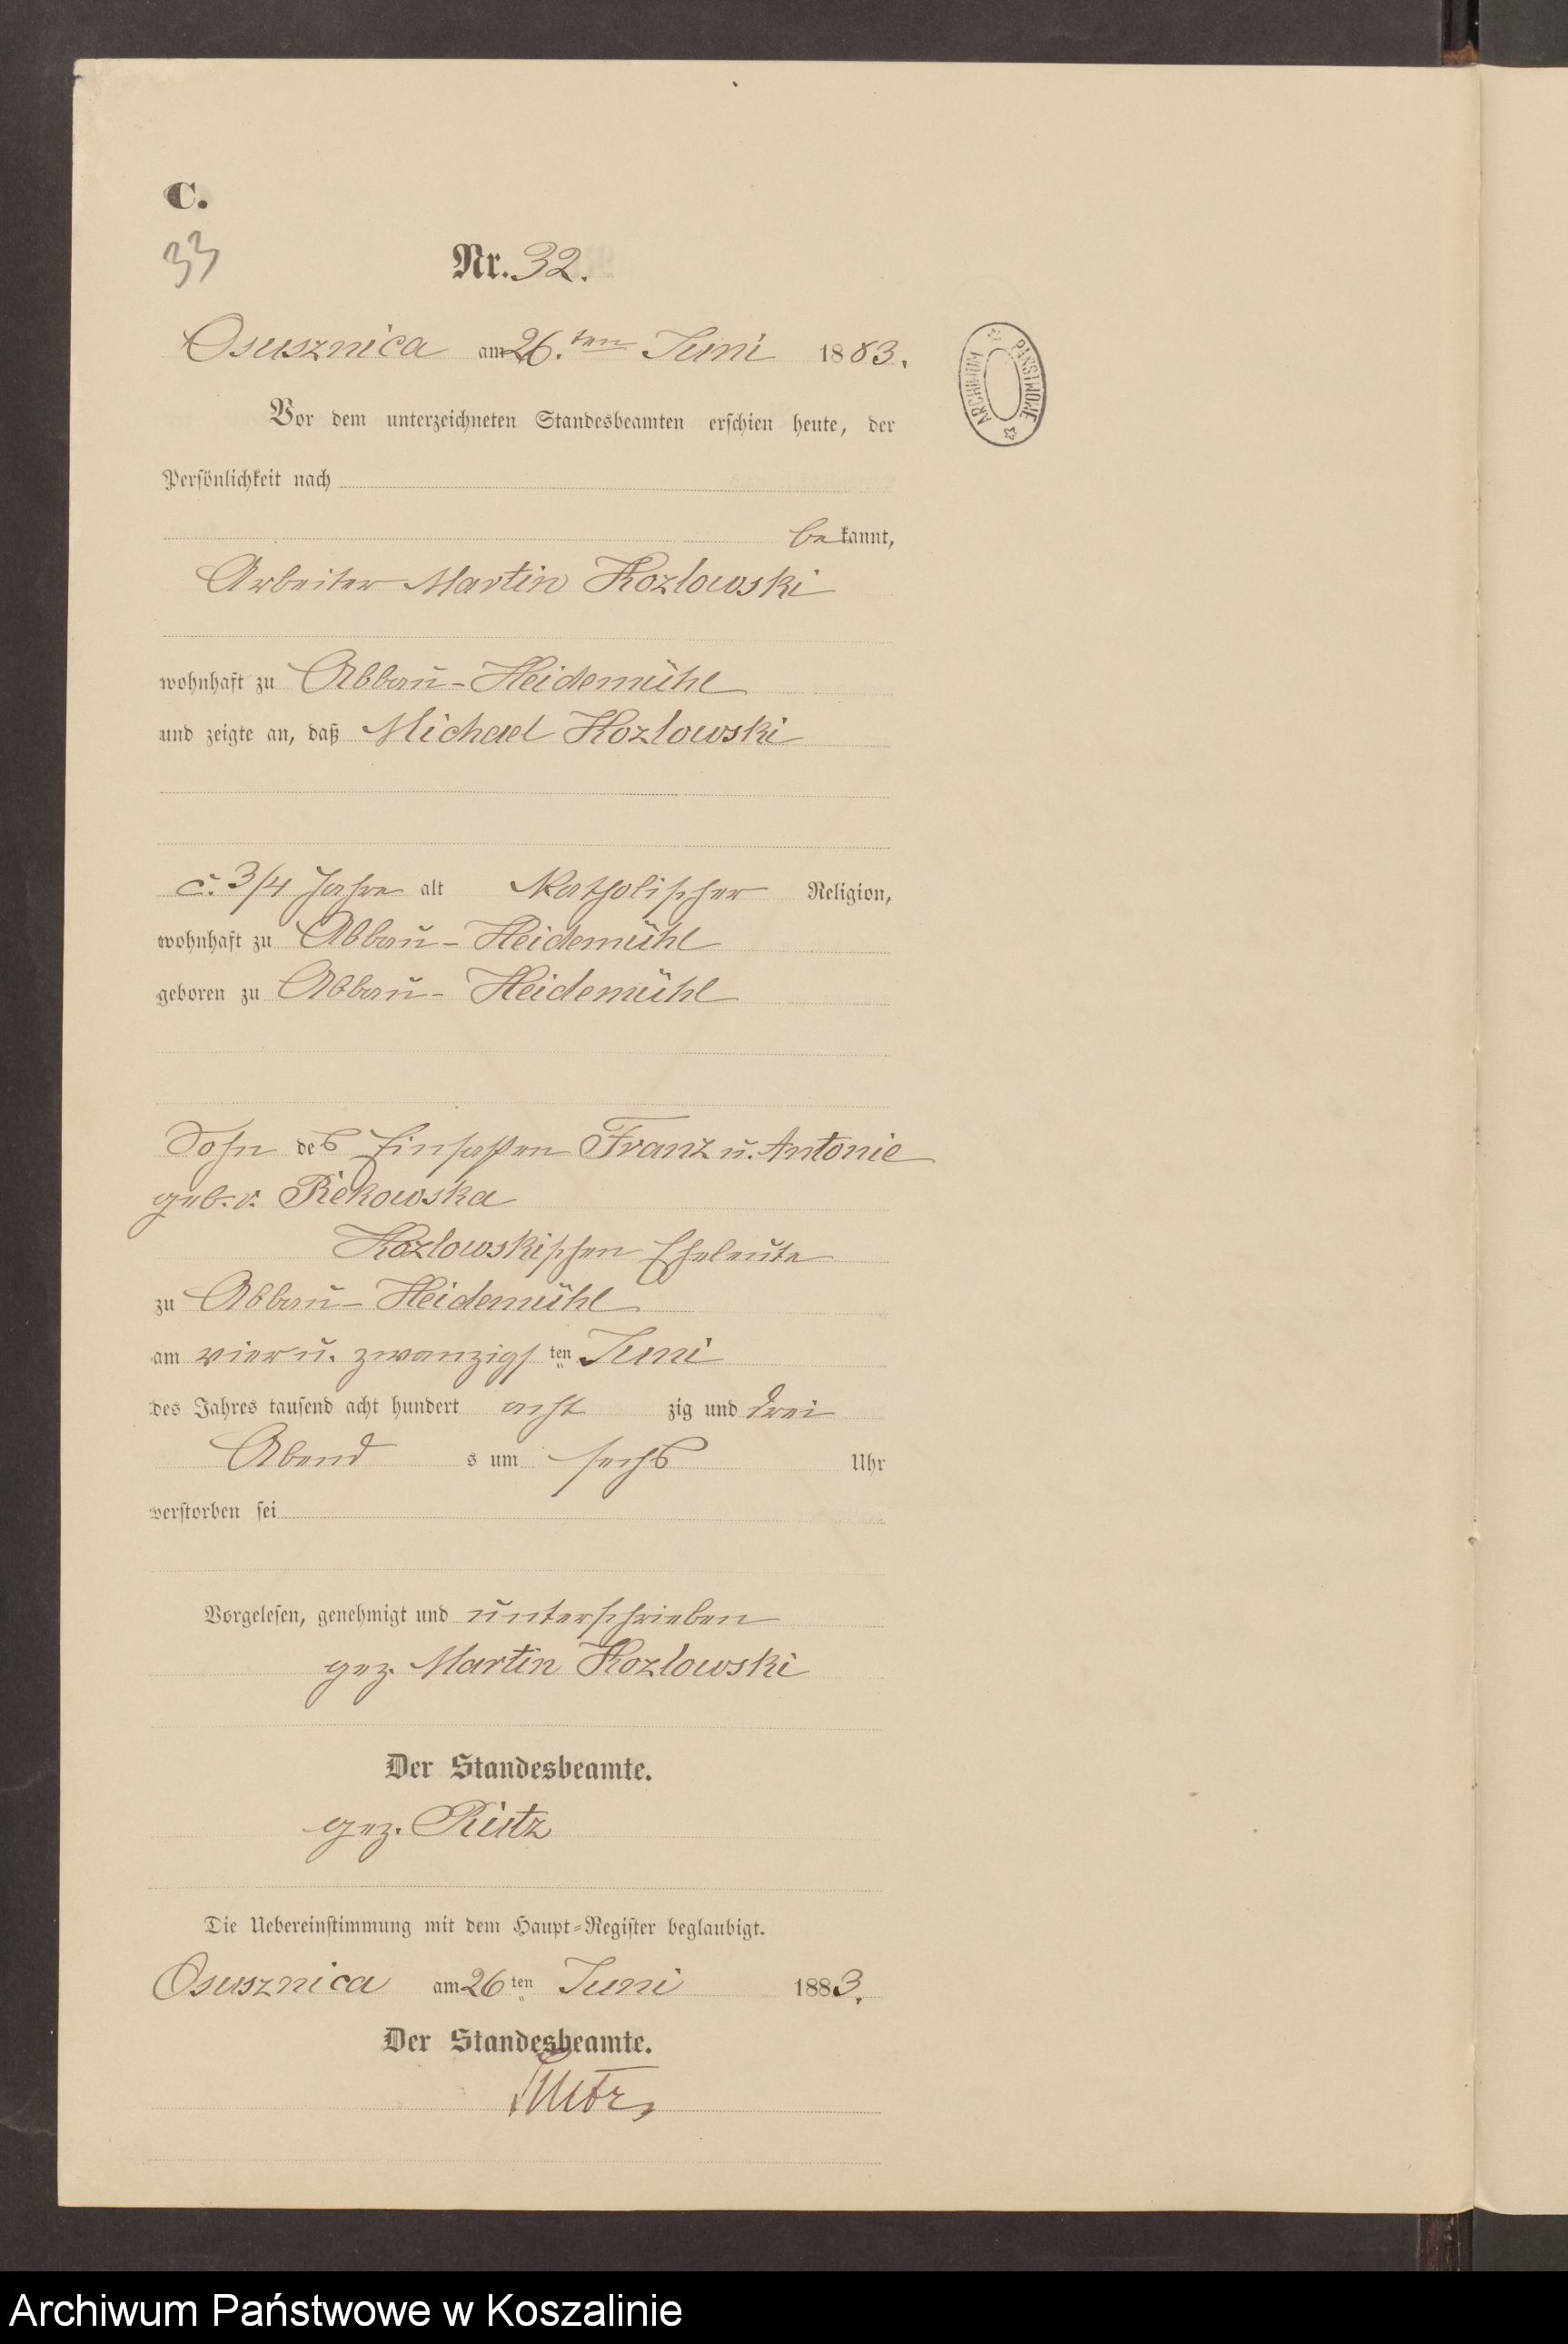 C.
33
Nr. 32.
Osusznica am 26.ten Juni 1883.
ARCHIWUM PAŃSTWOWE
Vor dem unterzeichneten Standesbeamten erschien heute, der
Persönlichkeit nach
bekannt,
Arbeiter Martin Kozlowski
wohnhaft zu Abbau-Heidemühl
und zeigte an, daß Michael Kozlowski
c. 3/4 Jahre alt Katholischer Religion,
wohnhaft zu Abbau-Heidemühl
geboren zu Abbau-Heidemühl
Sohn des Einsassen Franz u. Antonie
geb. v. Rekowska
Kozlowskischen Eheleute
zu Abbau-Heidemühl
am vier u. zwanzigsten Juni
des Jahres tausend acht hundert acht zig und drei
Abend s um sechs Uhr
verstorben sei
Vorgelesen, genehmigt und unterschrieben
gez. Martin Kozlowski
Der Standesbeamte.
gez.
Die Uebereinstimmung mit dem Haupt-Register beglaubigt.
Osusznica am 26ten Juni 1883.
Der Standesbeamte.
Archiwum Państwowe w Koszalinie